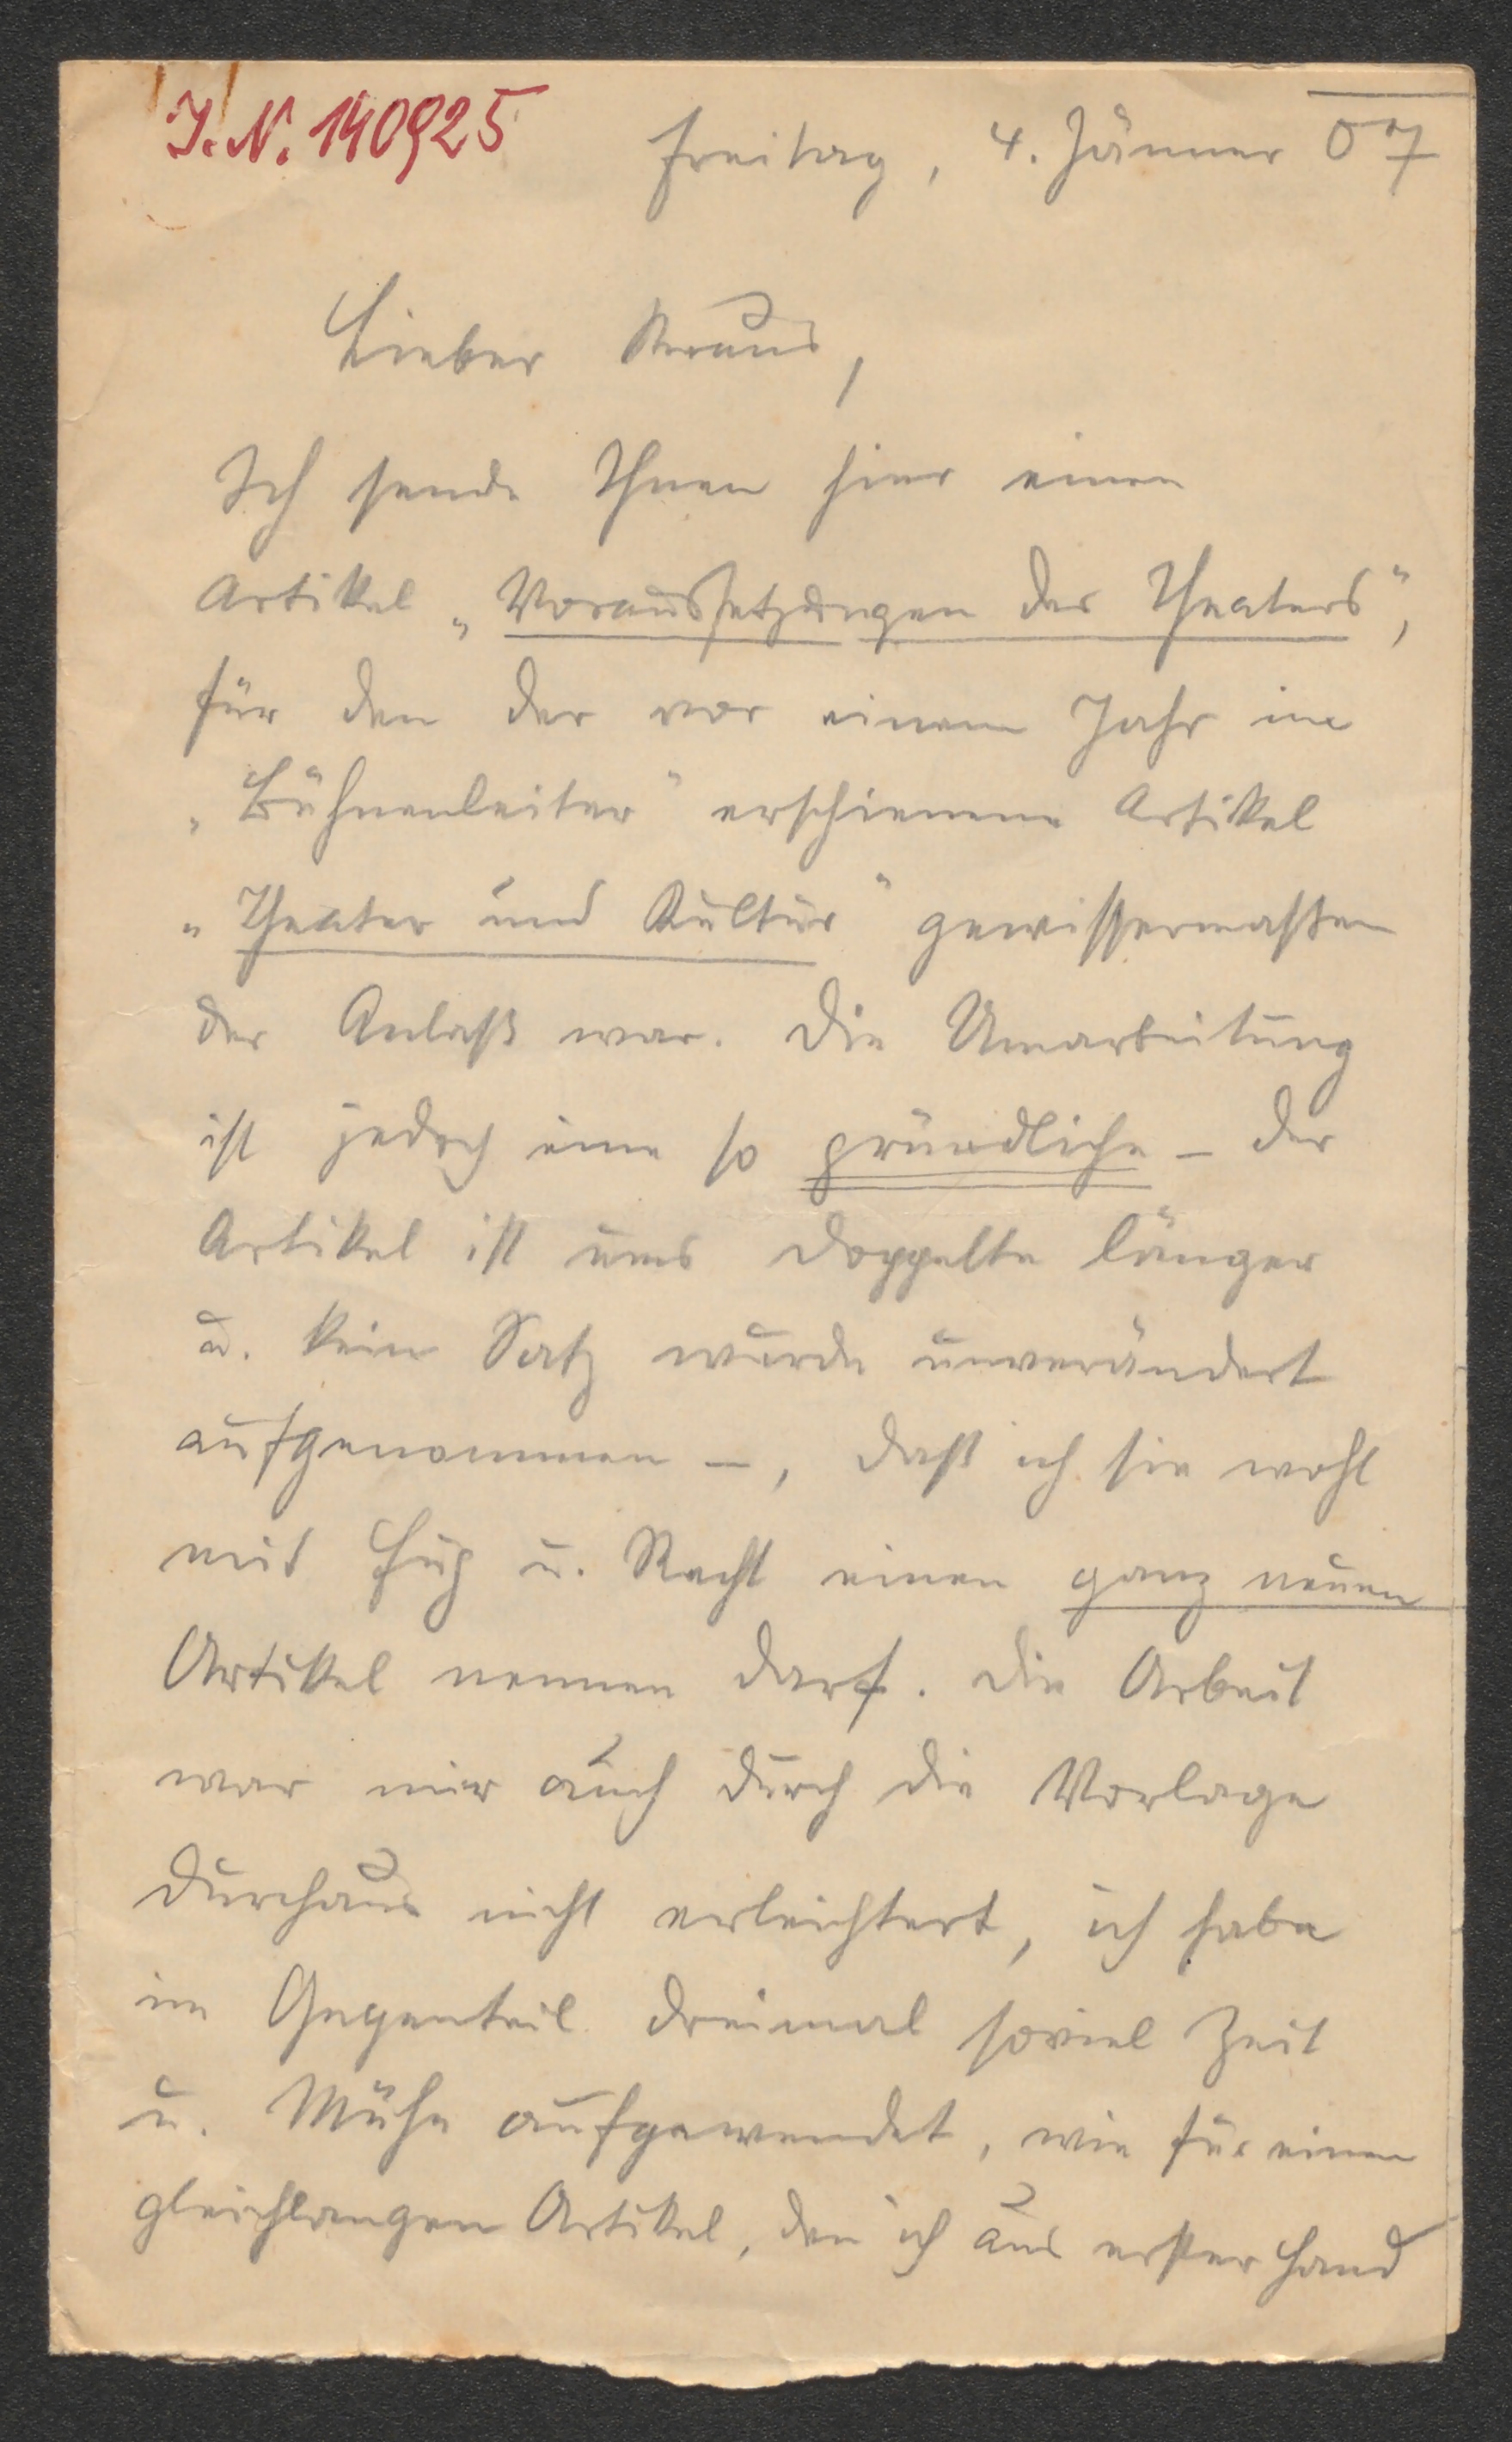 I. N. 140925
Freitag, 4. Jänner 07
Lieber Kraus,
Ich sende Ihnen hier einen
Artikel „Voraussetzungen des Theaters",
für den der vor einem Jahr im
„Bühnenleiter" erschienene Artikel
„Theater und Kultur" gewissermaßen
der Anlaß war. Die Umarbeitung
ist jedoch eine so gründliche – der
Artikel ist ums doppelte länger
u. kein Satz wurde unverändert
aufgenommen –, daß ich sie wohl
mit Fug u. Recht einen ganz neuen
Artikel nennen darf. Die Arbeit
war mir auch durch die Vorlage
durchaus nicht erleichtert, ich habe
im Gegenteil dreimal soviel Zeit
u. Mühe aufgewendet, wie für einen
gleichlangen Artikel, den ich aus erster Hand